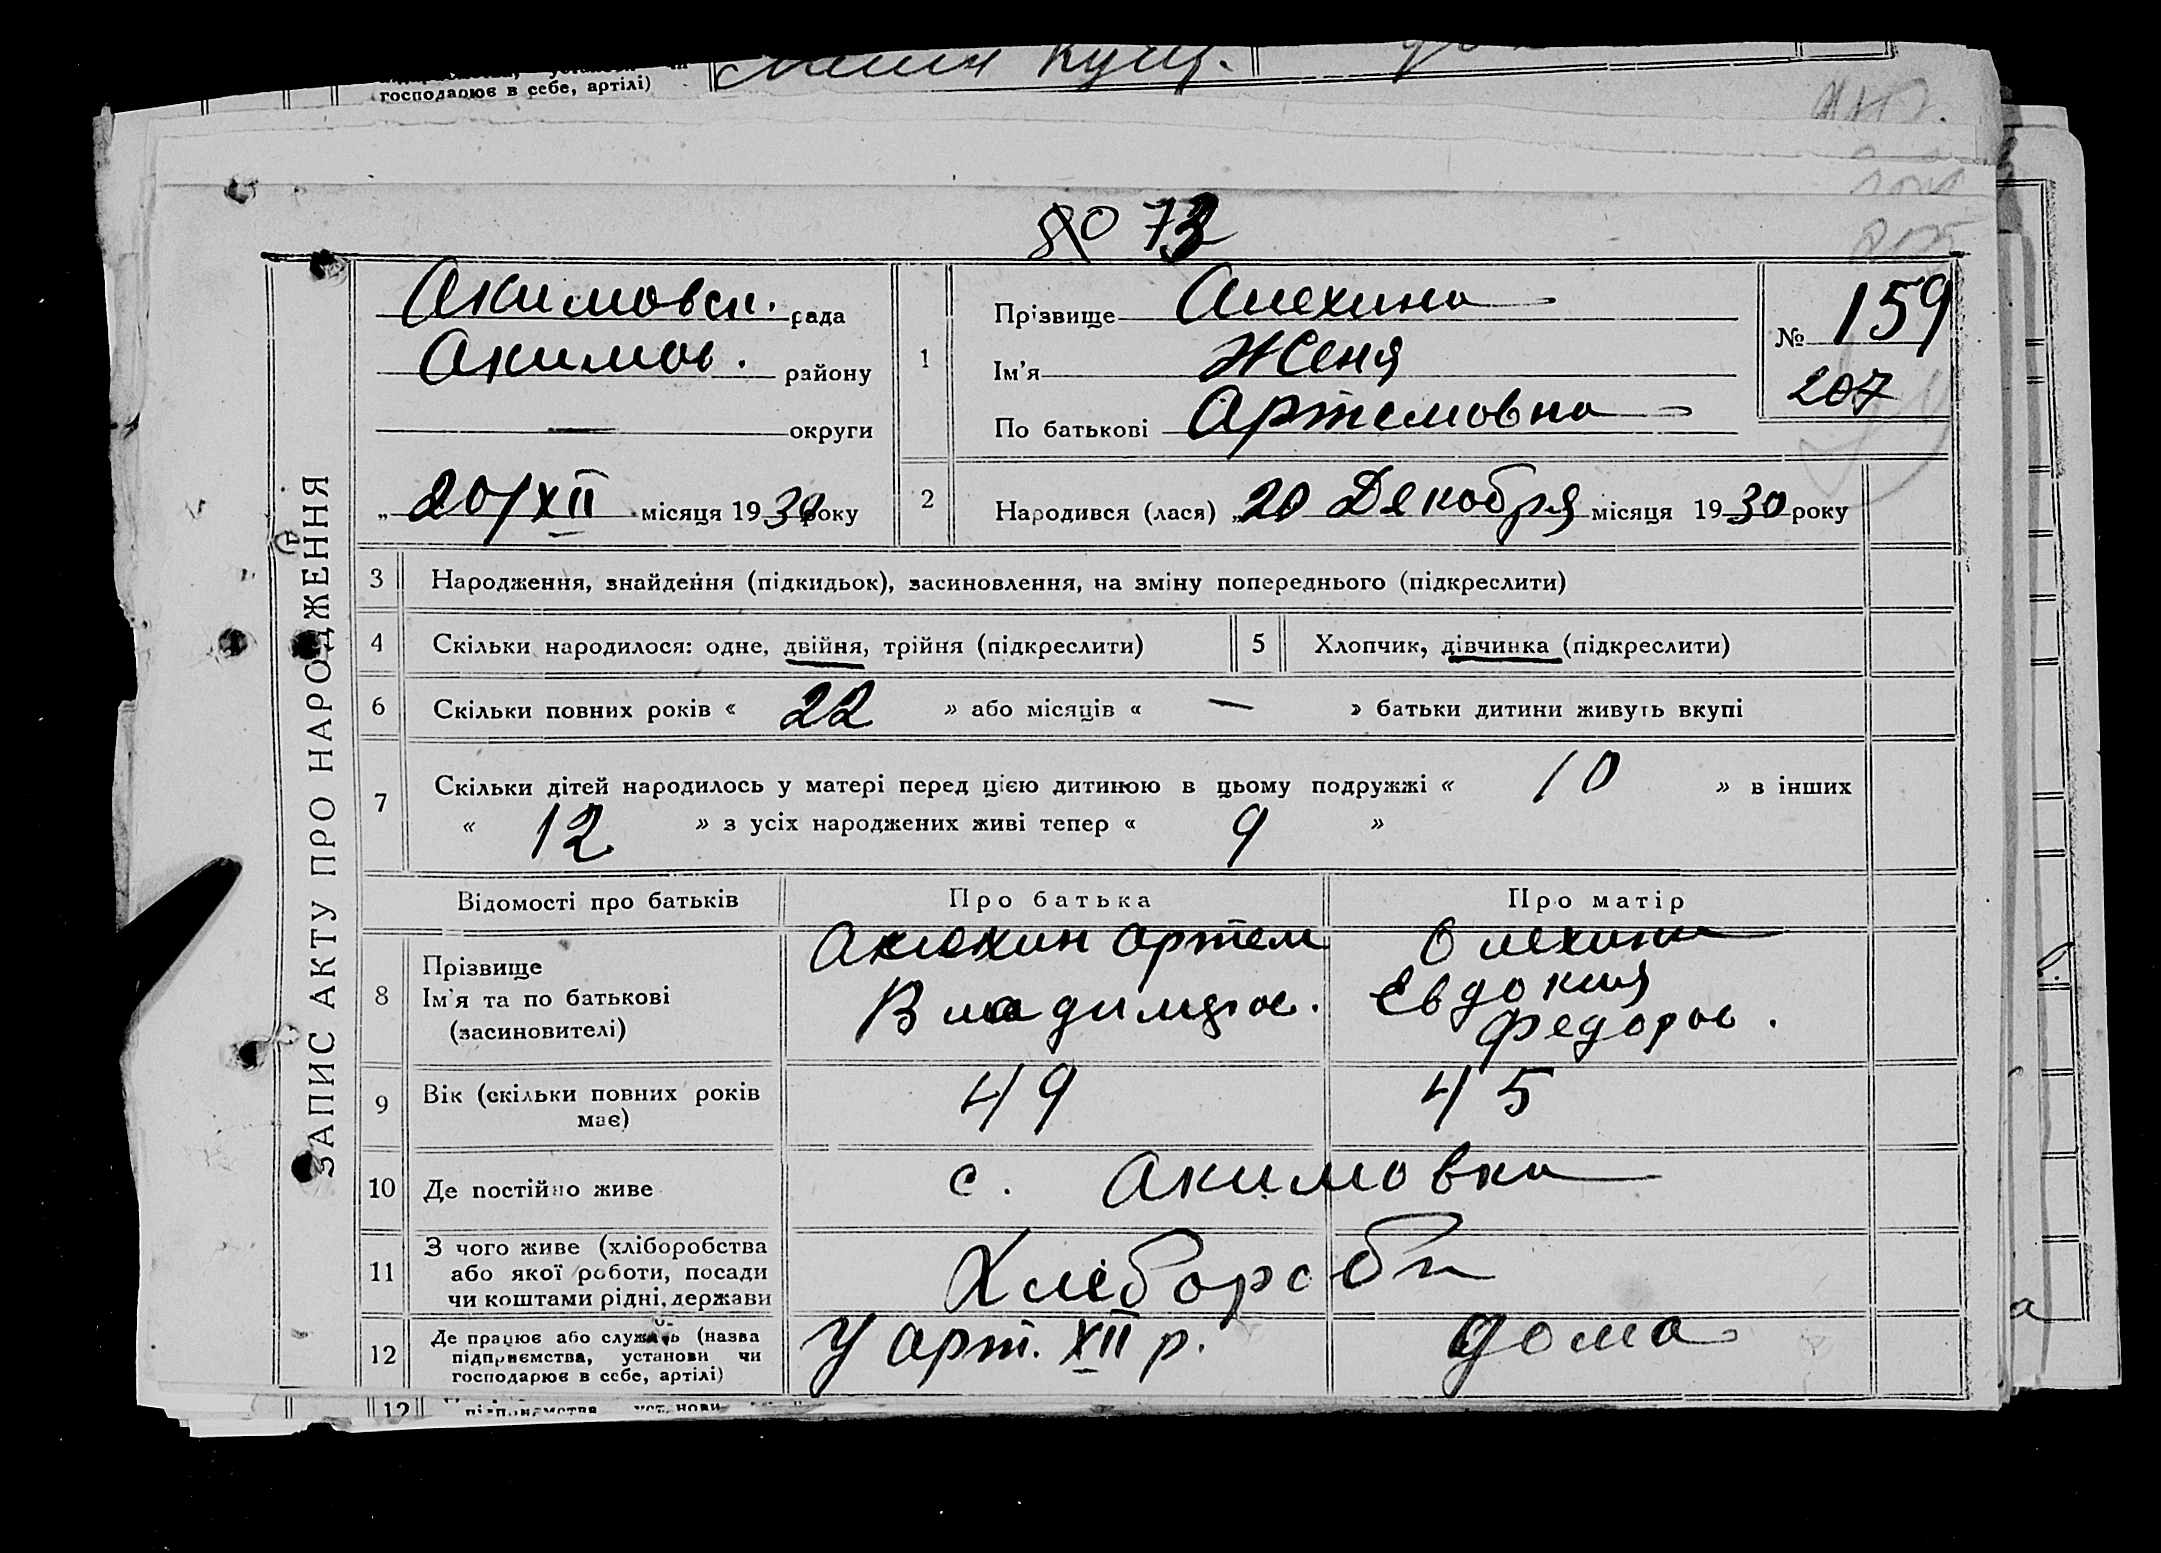 господарює в себе, артілі)
80 73
Акимовск. рада
Акимов. району
— округи
„ 20/XII місяця 1930 року
1
Прізвище Алехина
Ім'я Женя
По батькові Артемовна
№ 159
207
2 Народився (лася) „ 20 Декобря місяця 1930 року
ЗАПИС АКТУ ПРО НАРОДЖЕННЯ
3 Народження, знайдення (підкидьок), засиновлення, на зміну попереднього (підкреслити)
4 Скільки народилося: одне, двійня, трійня (підкреслити) 5 Хлопчик, дівчинка (підкреслити)
6 Скільки повних років « 22 » або місяців « — » батьки дитини живуть вкупі
7 Скільки дітей народилось у матері перед цією дитиною в цьому подружжі « 10 » в інших
« 12 » з усіх народжених живі тепер « 9 »
Відомості про батьків Про батька Про матір
8 Прізвище
Ім'я та по батькові
(засиновителі)
Алехин Артем
Владимиров.
Олехина
Евдокия
Федоров.
9 Вік (скільки повних років
має)
49 45
10 Де постійно живе с. Акимовка
11 З чого живе (хліборобства
або якої роботи, посади
чи коштами рідні, держави
Хлібороби
12 Де працює або служить (назва
підприємства, установи чи
господарює в себе, артілі)
У арт. XII р. дома
12